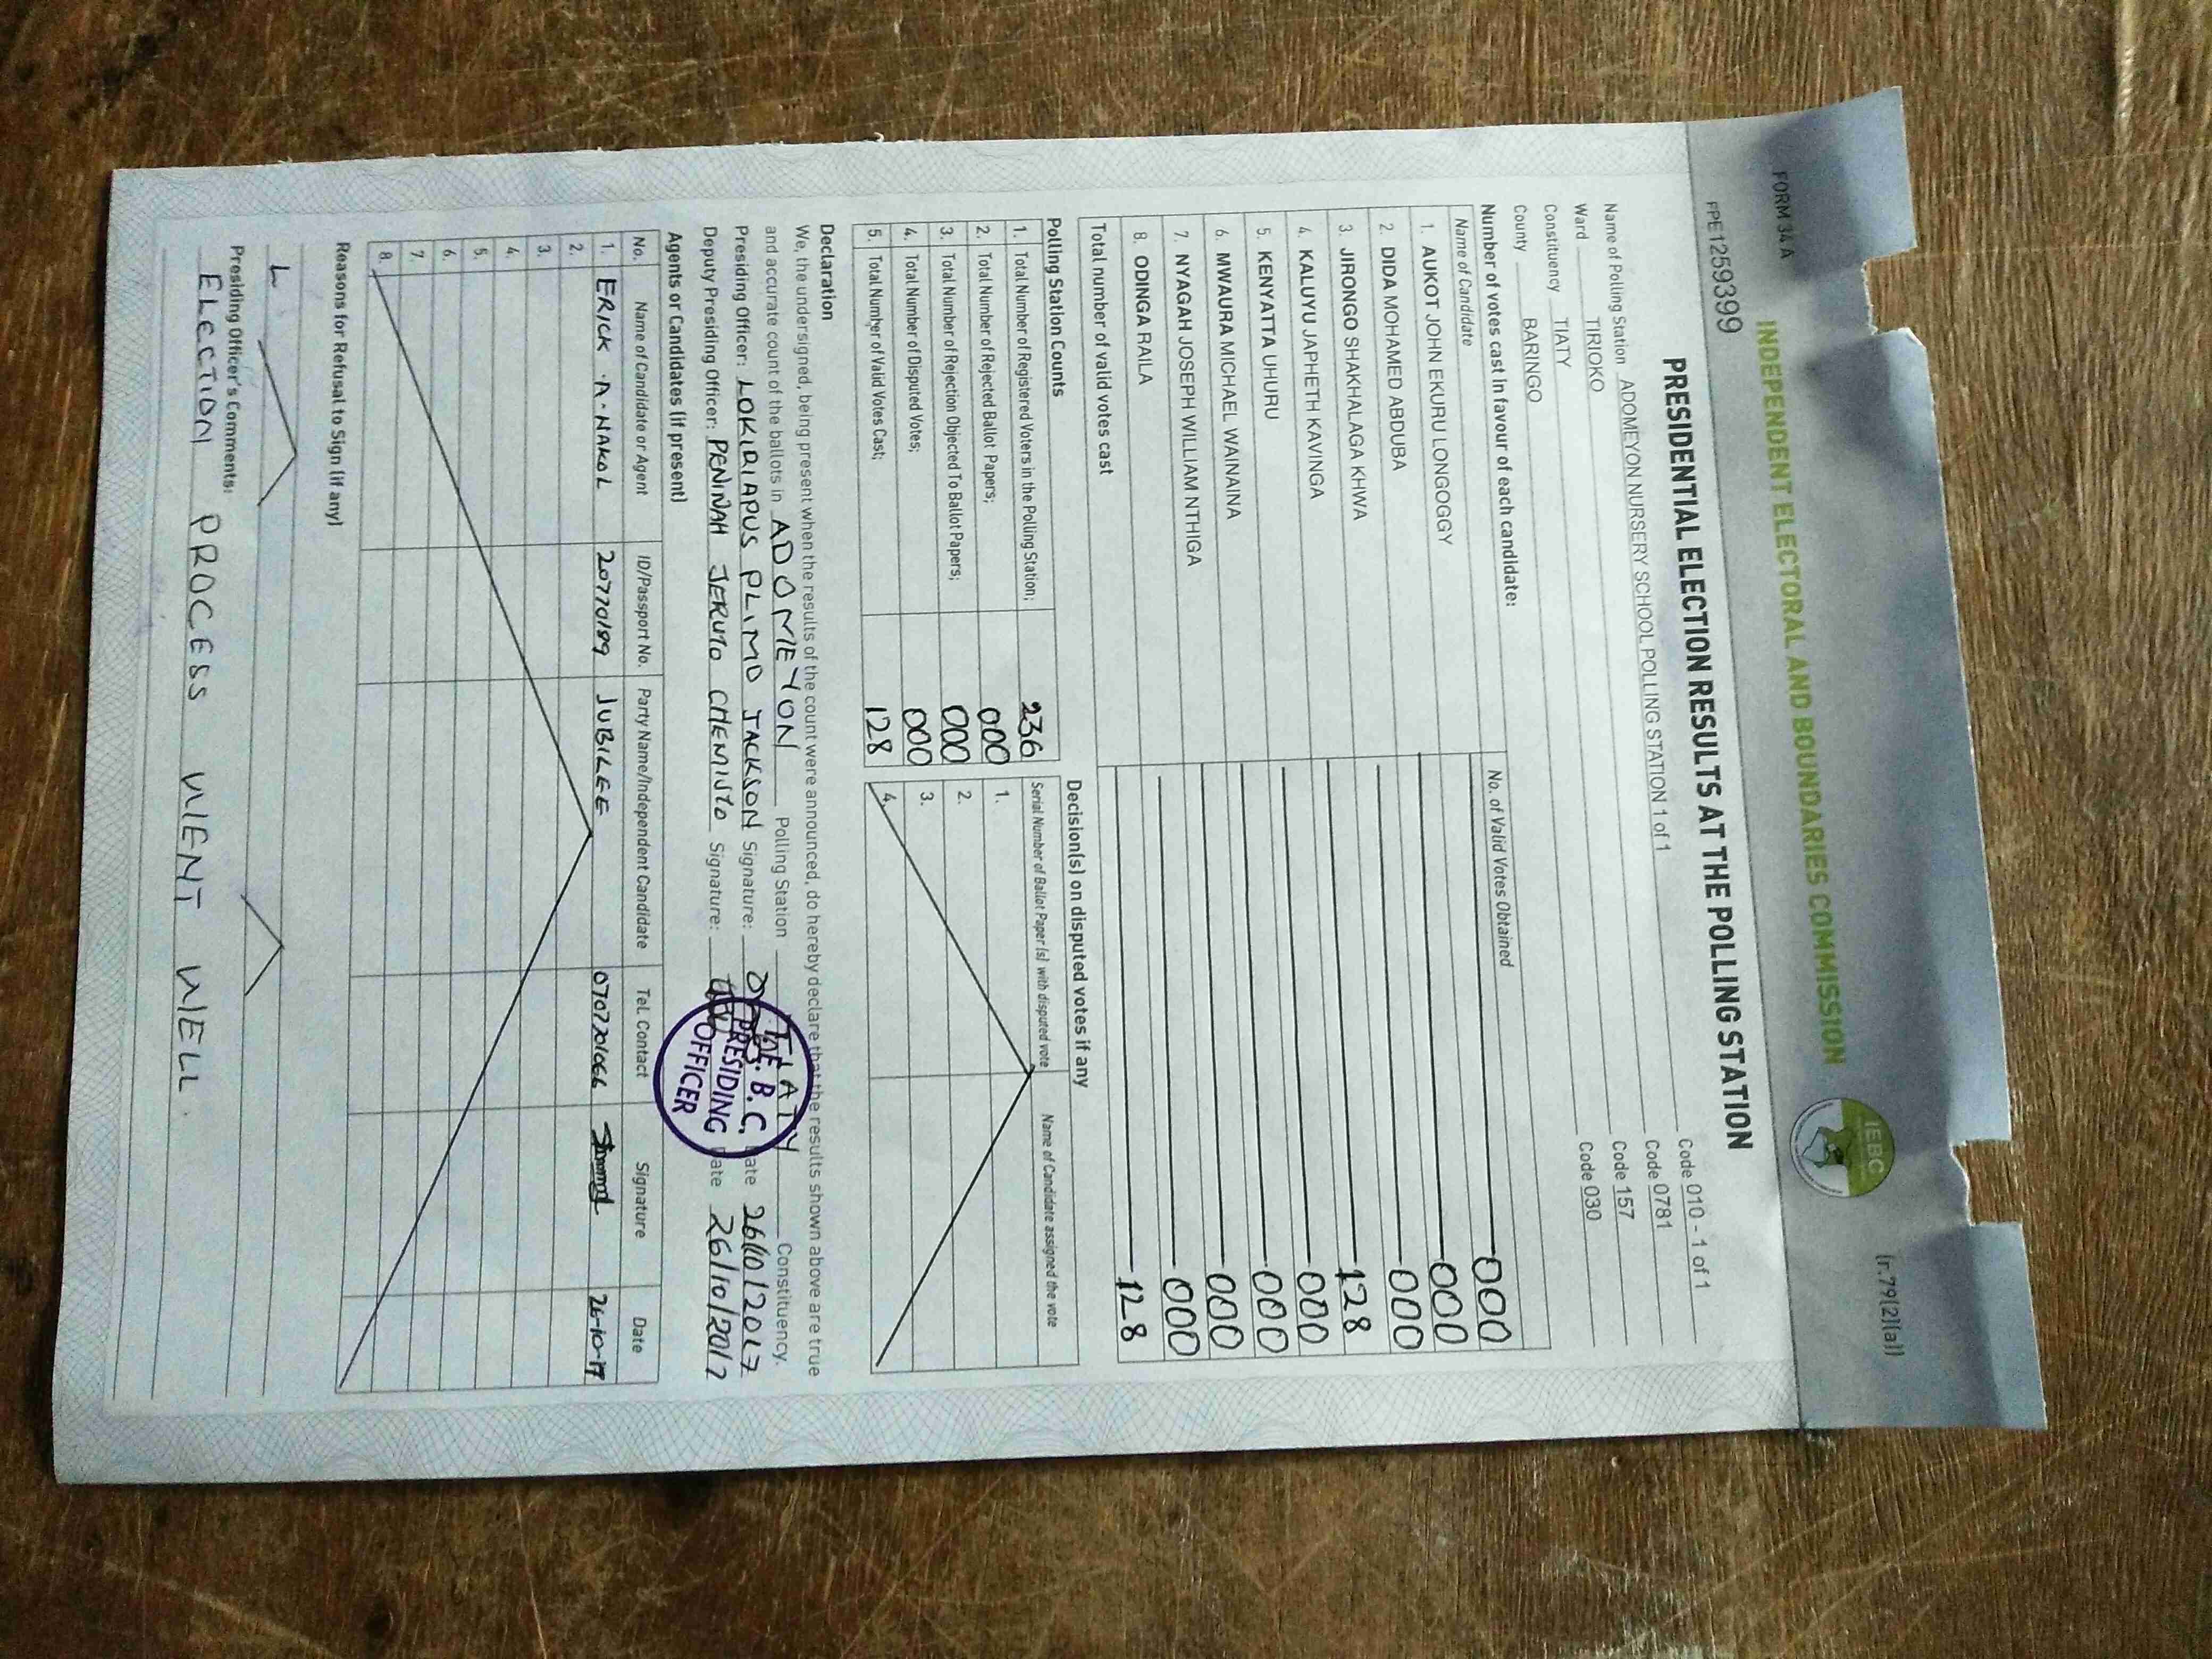 FORM 34 A
(r.79(2)(a))
INDEPENDENT ELECTORAL AND BOUNDARIES COMMISSION
IEBC
FPE1259399
PRESIDENTIAL ELECTION RESULTS AT THE POLLING STATION
Name of Polling Station ADOMEYON NURSERY SCHOOL POLLING STATION 1 of 1 Code 010 - 1 of 1
Ward TIRIOKO Code 0781
Constituency TIATY Code 157
County BARINGO Code 030
Number of votes cast in favour of each candidate:
Name of Candidate No. of Valid Votes Obtained
1. AUKOT JOHN EKURU LONGOGGY 000
2. DIDA MOHAMED ABDUBA 000
3. JIRONGO SHAKHALAGA KHWA 000
4. KALUYU JAPHETH KAVINGA 128
5. KENYATTA UHURU 000
6. MWAURA MICHAEL WAINAINA 000
7. NYAGAH JOSEPH WILLIAM NTHIGA 000
8. ODINGA RAILA 000
Total number of valid votes cast 128
Polling Station Counts
1. Total Number of Registered Voters in the Polling Station; 236
2. Total Number of Rejected Ballot Papers; 000
3. Total Number of Rejection Objected To Ballot Papers; 000
4. Total Number of Disputed Votes; 000
5. Total Number of Valid Votes Cast; 128
Decision(s) on disputed votes if any
Serial Number of Ballot Paper (s) with disputed vote Name of Candidate assigned the vote
1.
2.
3.
4.
Declaration
We, the undersigned, being present when the results of the count were announced, do hereby declare that the results shown above are true
and accurate count of the ballots in ADOMEYON Polling Station TIATY Constituency.
Presiding Officer: LOKIRIAPUS PLIMO JACKSON Signature: Date 26/10/2017
Deputy Presiding Officer: PENINAH JERUTO CHEMISTO Signature: Date 26/10/2017
I.E.B.C.
PRESIDING
OFFICER
Agents or Candidates (if present)
No. Name of Candidate or Agent ID/Passport No. Party Name/Independent Candidate Tel. Contact Signature Date
1. ERICK A. NAKOL 20770189 JUBILEE 0707201066 26-10-17
2.
3.
4.
5.
6.
7.
8.
Reasons for Refusal to Sign (if any)
Presiding Officer's Comments:
ELECTION PROCESS WENT WELL.